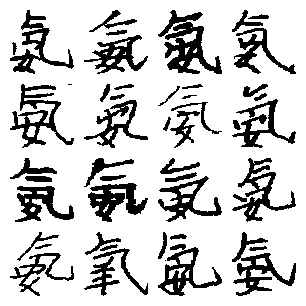 氨氨氨氨
氨氨氨氨
氨氨氨氨
氨氧氨氨